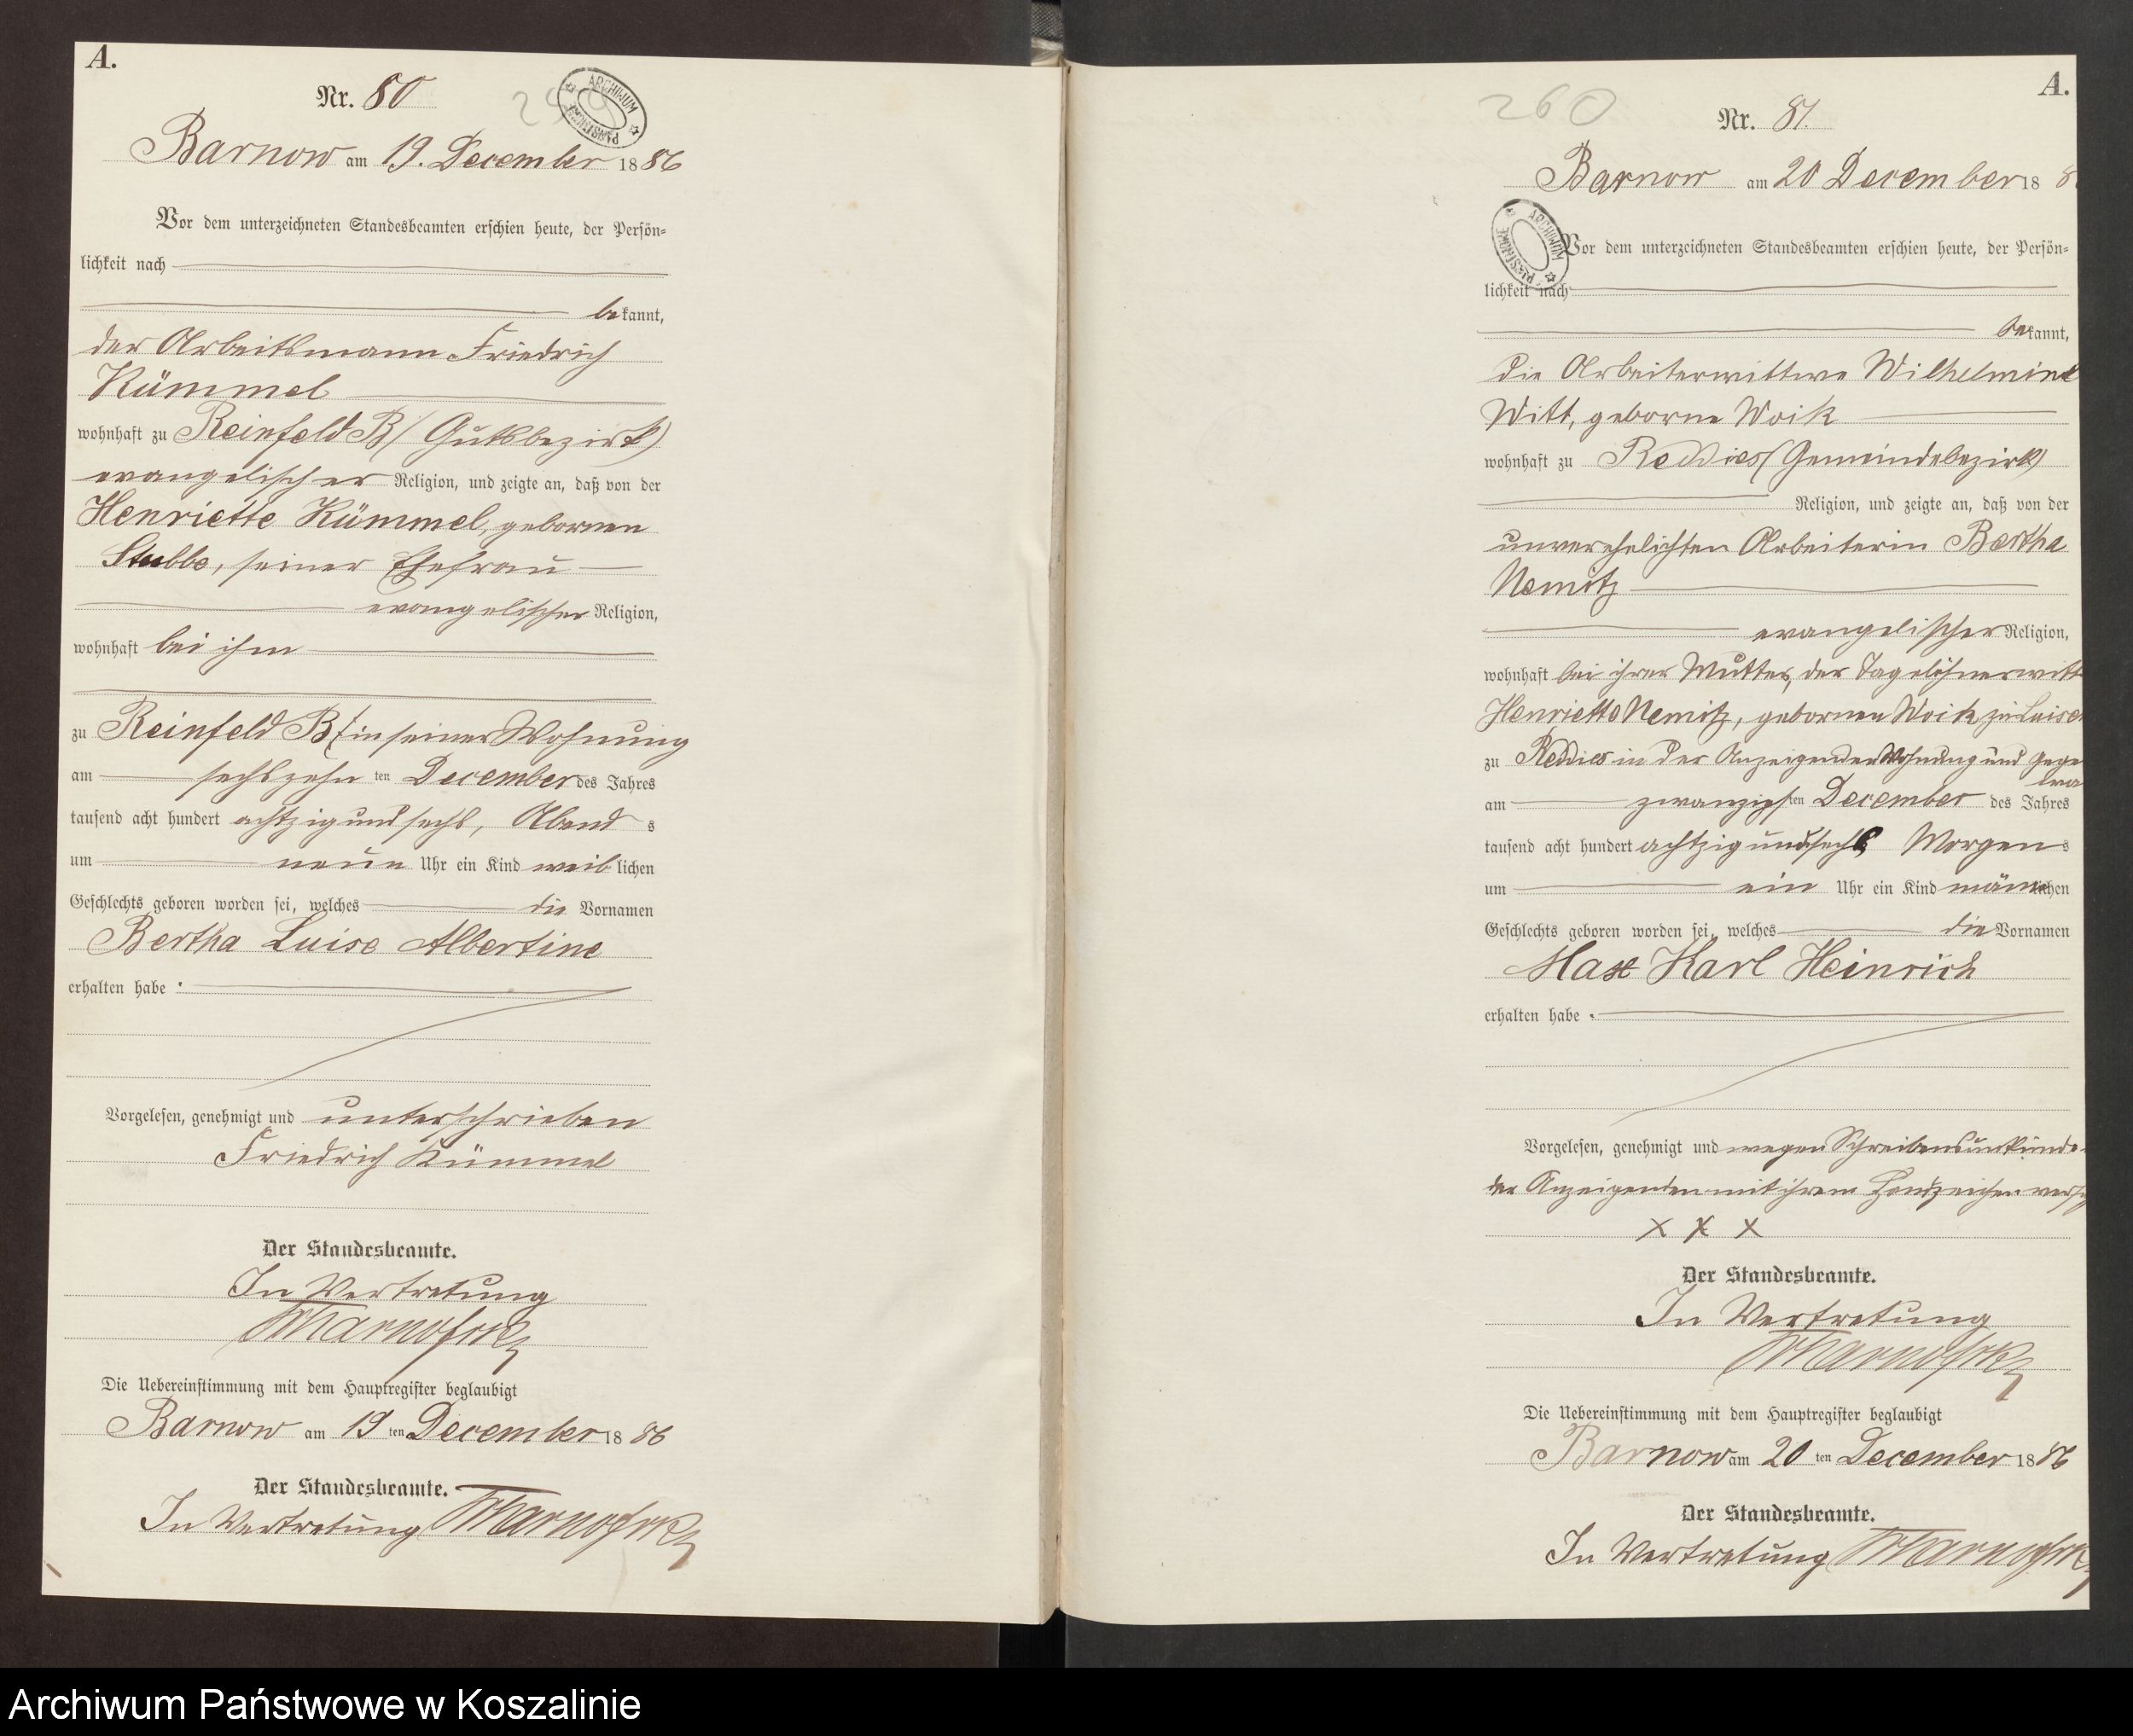 A.
Nr. 80
259
ARCHIWUM PAŃSTWOWE
Barnow am 19. December 1886
Vor dem unterzeichneten Standesbeamten erschien heute, der Persön-
lichkeit nach
bekannt,
der Arbeitsmann Friedrich
Kümmel
wohnhaft zu Reinfeld B/ Gutsbezirk)
evangelischer Religion, und zeigte an, daß von der
Henriette Kümmel, gebornen
Stubbe, seiner Ehefrau
evangelischer Religion,
wohnhaft bei ihm
zu Reinfeld B/ in seiner Wohnung
am sechszehn ten December des Jahres
tausend acht hundert achtzig und sechs, Abend s
um neun Uhr ein Kind weiblichen
Geschlechts geboren worden sei, welches die Vornamen
Bertha Luise Albertine
erhalten habe.
Vorgelesen, genehmigt und unterschrieben
Friedrich Kümmel
Der Standesbeamte.
In Vertretung
Die Uebereinstimmung mit dem Hauptregister beglaubigt
Barnow am 19 ten December 1886
Der Standesbeamte.
In Vertretung
A.
260
Nr. 81.
Barnow am 20 December 18 8
ARCHIWUM PAŃSTWOWE
Vor dem unterzeichneten Standesbeamten erschien heute, der Persön-
lichkeit nach
bekannt,
die Arbeiterwittwe Wilhelmine
Witt, geborne Woik
wohnhaft zu Reddies (Gemeindebezirk)
Religion, und zeigte an, daß von der
unverehelichten Arbeiterin Bertha
Nemitz
evangelischer Religion,
wohnhaft bei ihrer Mutter, der Tagelöhnerwitt
Henriette Nemitz, gebornen Woik zu
zu Reddies in der Anzeigenden Wohnung und Gege
am zwanzigsten December des Jahres
tausend acht hundert achtzig und sechs Morgens
um ein Uhr ein Kind männlichen
Geschlechts geboren worden sei, welches die Vornamen
Max Karl Heinrich
erhalten habe.
Vorgelesen, genehmigt und wegen Schreibensunkunde
der Anzeigenden mit ihrem Handzeichen
X X X
Der Standesbeamte.
In Vertretung
Die Uebereinstimmung mit dem Hauptregister beglaubigt
Barnow am 20 ten December 1886
Der Standesbeamte.
In Vertretung
Archiwum Państwowe w Koszalinie